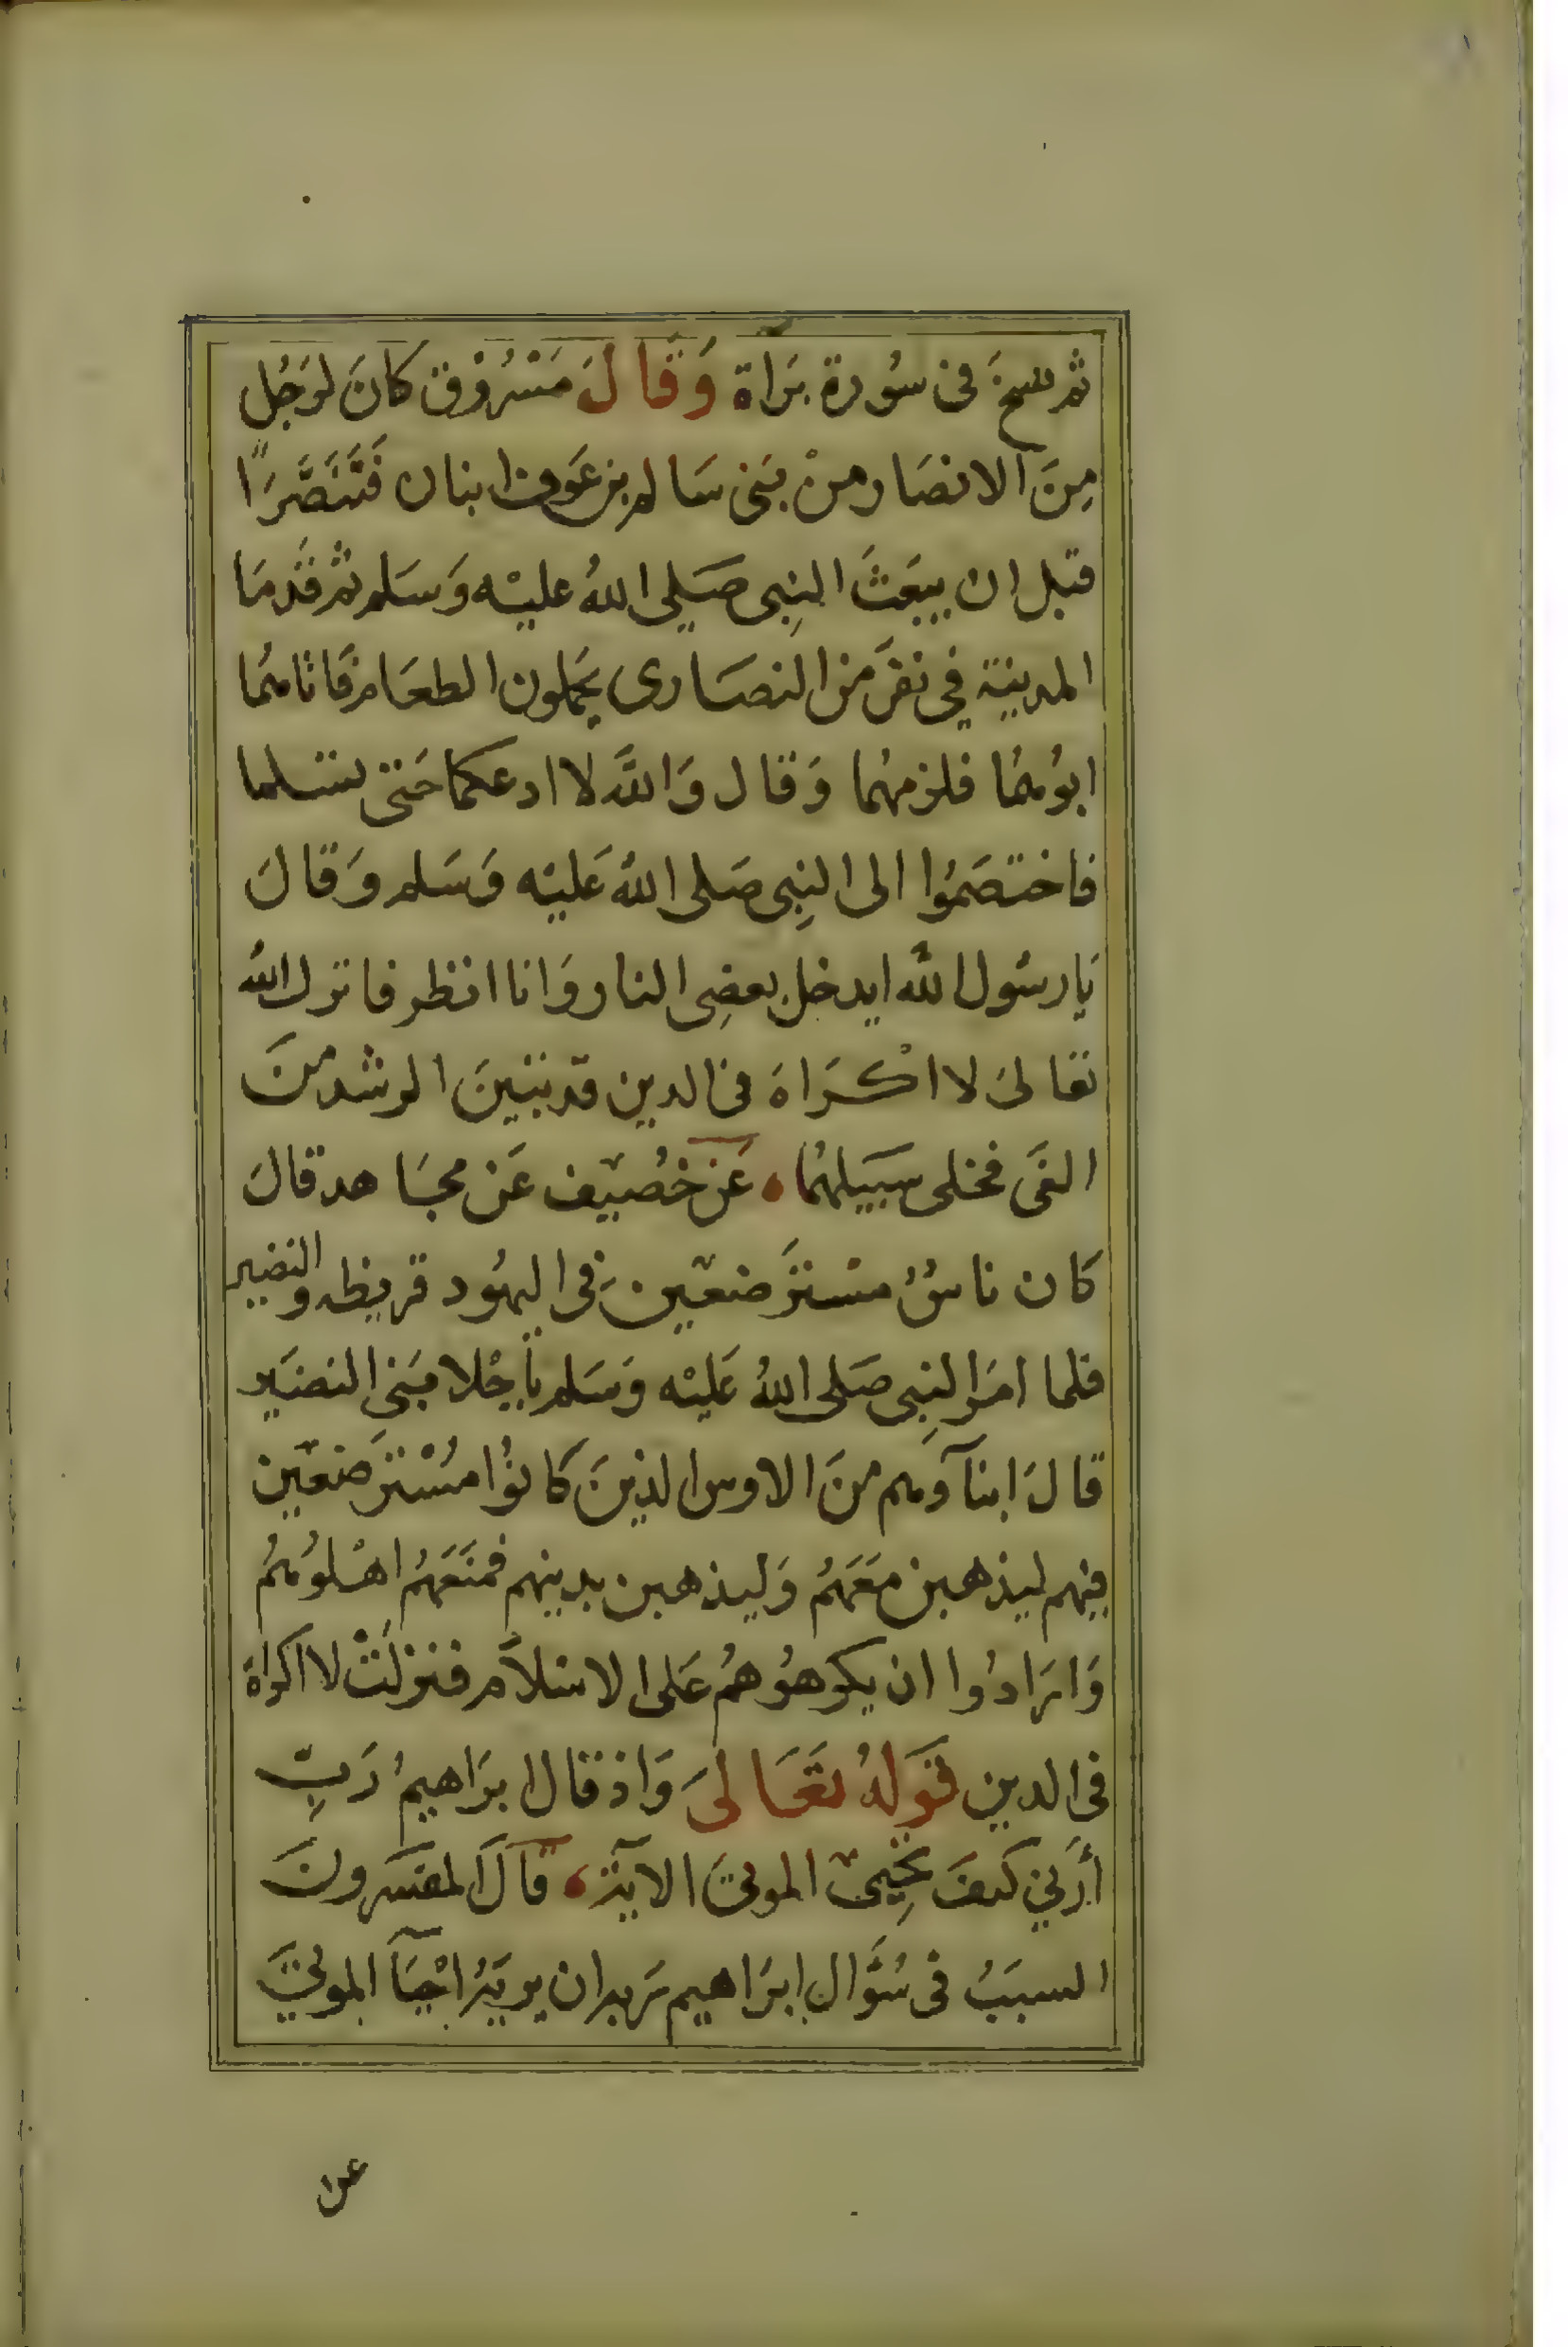 ثم نسخ في سُورة بَراة وَقَالَ مَسْرُوْق كانَ لرَجُلٍ
مِنَ الانصَار منْ بَنى سَالم بن عَوف ابنان فَتَنَصَّرَا
قبل ان يبعَثَ النبِى صَلى اللهُ عليْه وَسَلم ثمْ قَدمَا
المدينة في نفَر من النصَارى يحملون الطعَام فَاتاهمُا
ابوُهمُا فلزمهُما وَقال وَاللَّه لا ادعكما حَتى تسلما
فاختصَمُوا الى النبِى صَلى اللهُ عَليْه وَسَلم وَقالَ
يَا رسُول الله ايدخل بعضِى النار وَانا انظر فانزل الله
تعَالىَ لا اكْرَاهَ فى الدين قد تبَينَ الرشد منَ
الغَى فخلى سَبيلهُما عَن خُصَيف عَن مجَاهد قالَ
كان ناسٌ مسْترَضعَين فِى اليهُود قريظه والنضير
فلما امَر النبِى صَلى اللهُ عَليْه وَسَلم بأجْلا بَنى النضَير
قالَ ابنآوهم منَ الاوس الذينَ كانوُا مُسْترَضعَين
فيهم ليذهبن معَهمُ وَليذهبن بدينهم فمنَعَهمُ اهْلوُهمُ
وَارَادُوا ان يكرهوُهمُ عَلى الاسْلاَم فنزلَتْ لا اكراهَ
فى الدين قَوَلهُ تعَالىَ وَاذ قال ابرَاهيمُ رَبِّ
أرِني كيفَ تحْيِى الموتىَ الايَة قالَ المفسَرونَ
السبَبُ فى سُؤَال ابرَاهيم رَبه ان يريَهُ احْيَآ الموتىَ
عن